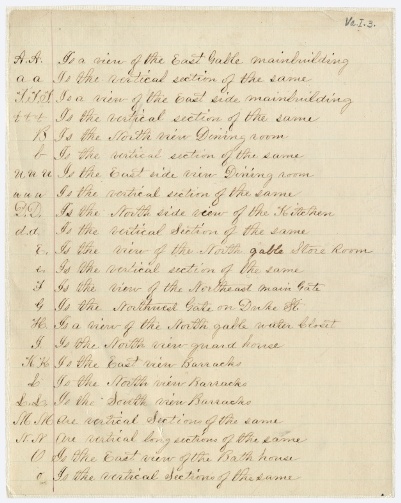 Va. I. 3.
A. A. Is a view of the East Gable mainbuilding
a a Is the vertical section of the same
Is a view of the East side mainbuilding
Is the vertical section of the same
B Is the North view Dining room
b Is the vertical section of the same
Is the East side view Dining room
Is the vertical section of the same
D. D. Is the North side view of the Kitchen
d. d. Is the vertical Section of the same
E. Is the view of the North gable Store Room
e. Is the vertical section of the same
F Is the view of the Northeast main Gate
G Is the Northwest Gate on Duke St
H. Is a view of the North gable water Closet
I Is the North view guard house
K K Is the East view Barracks
L Is the North view Barracks
L. L. Is the South view Barracks
M M Are vertical Sections of the same
N. N Are vertical long sections of the same
O Is the East view of the Bath house
o Is the vertical Sections of the same